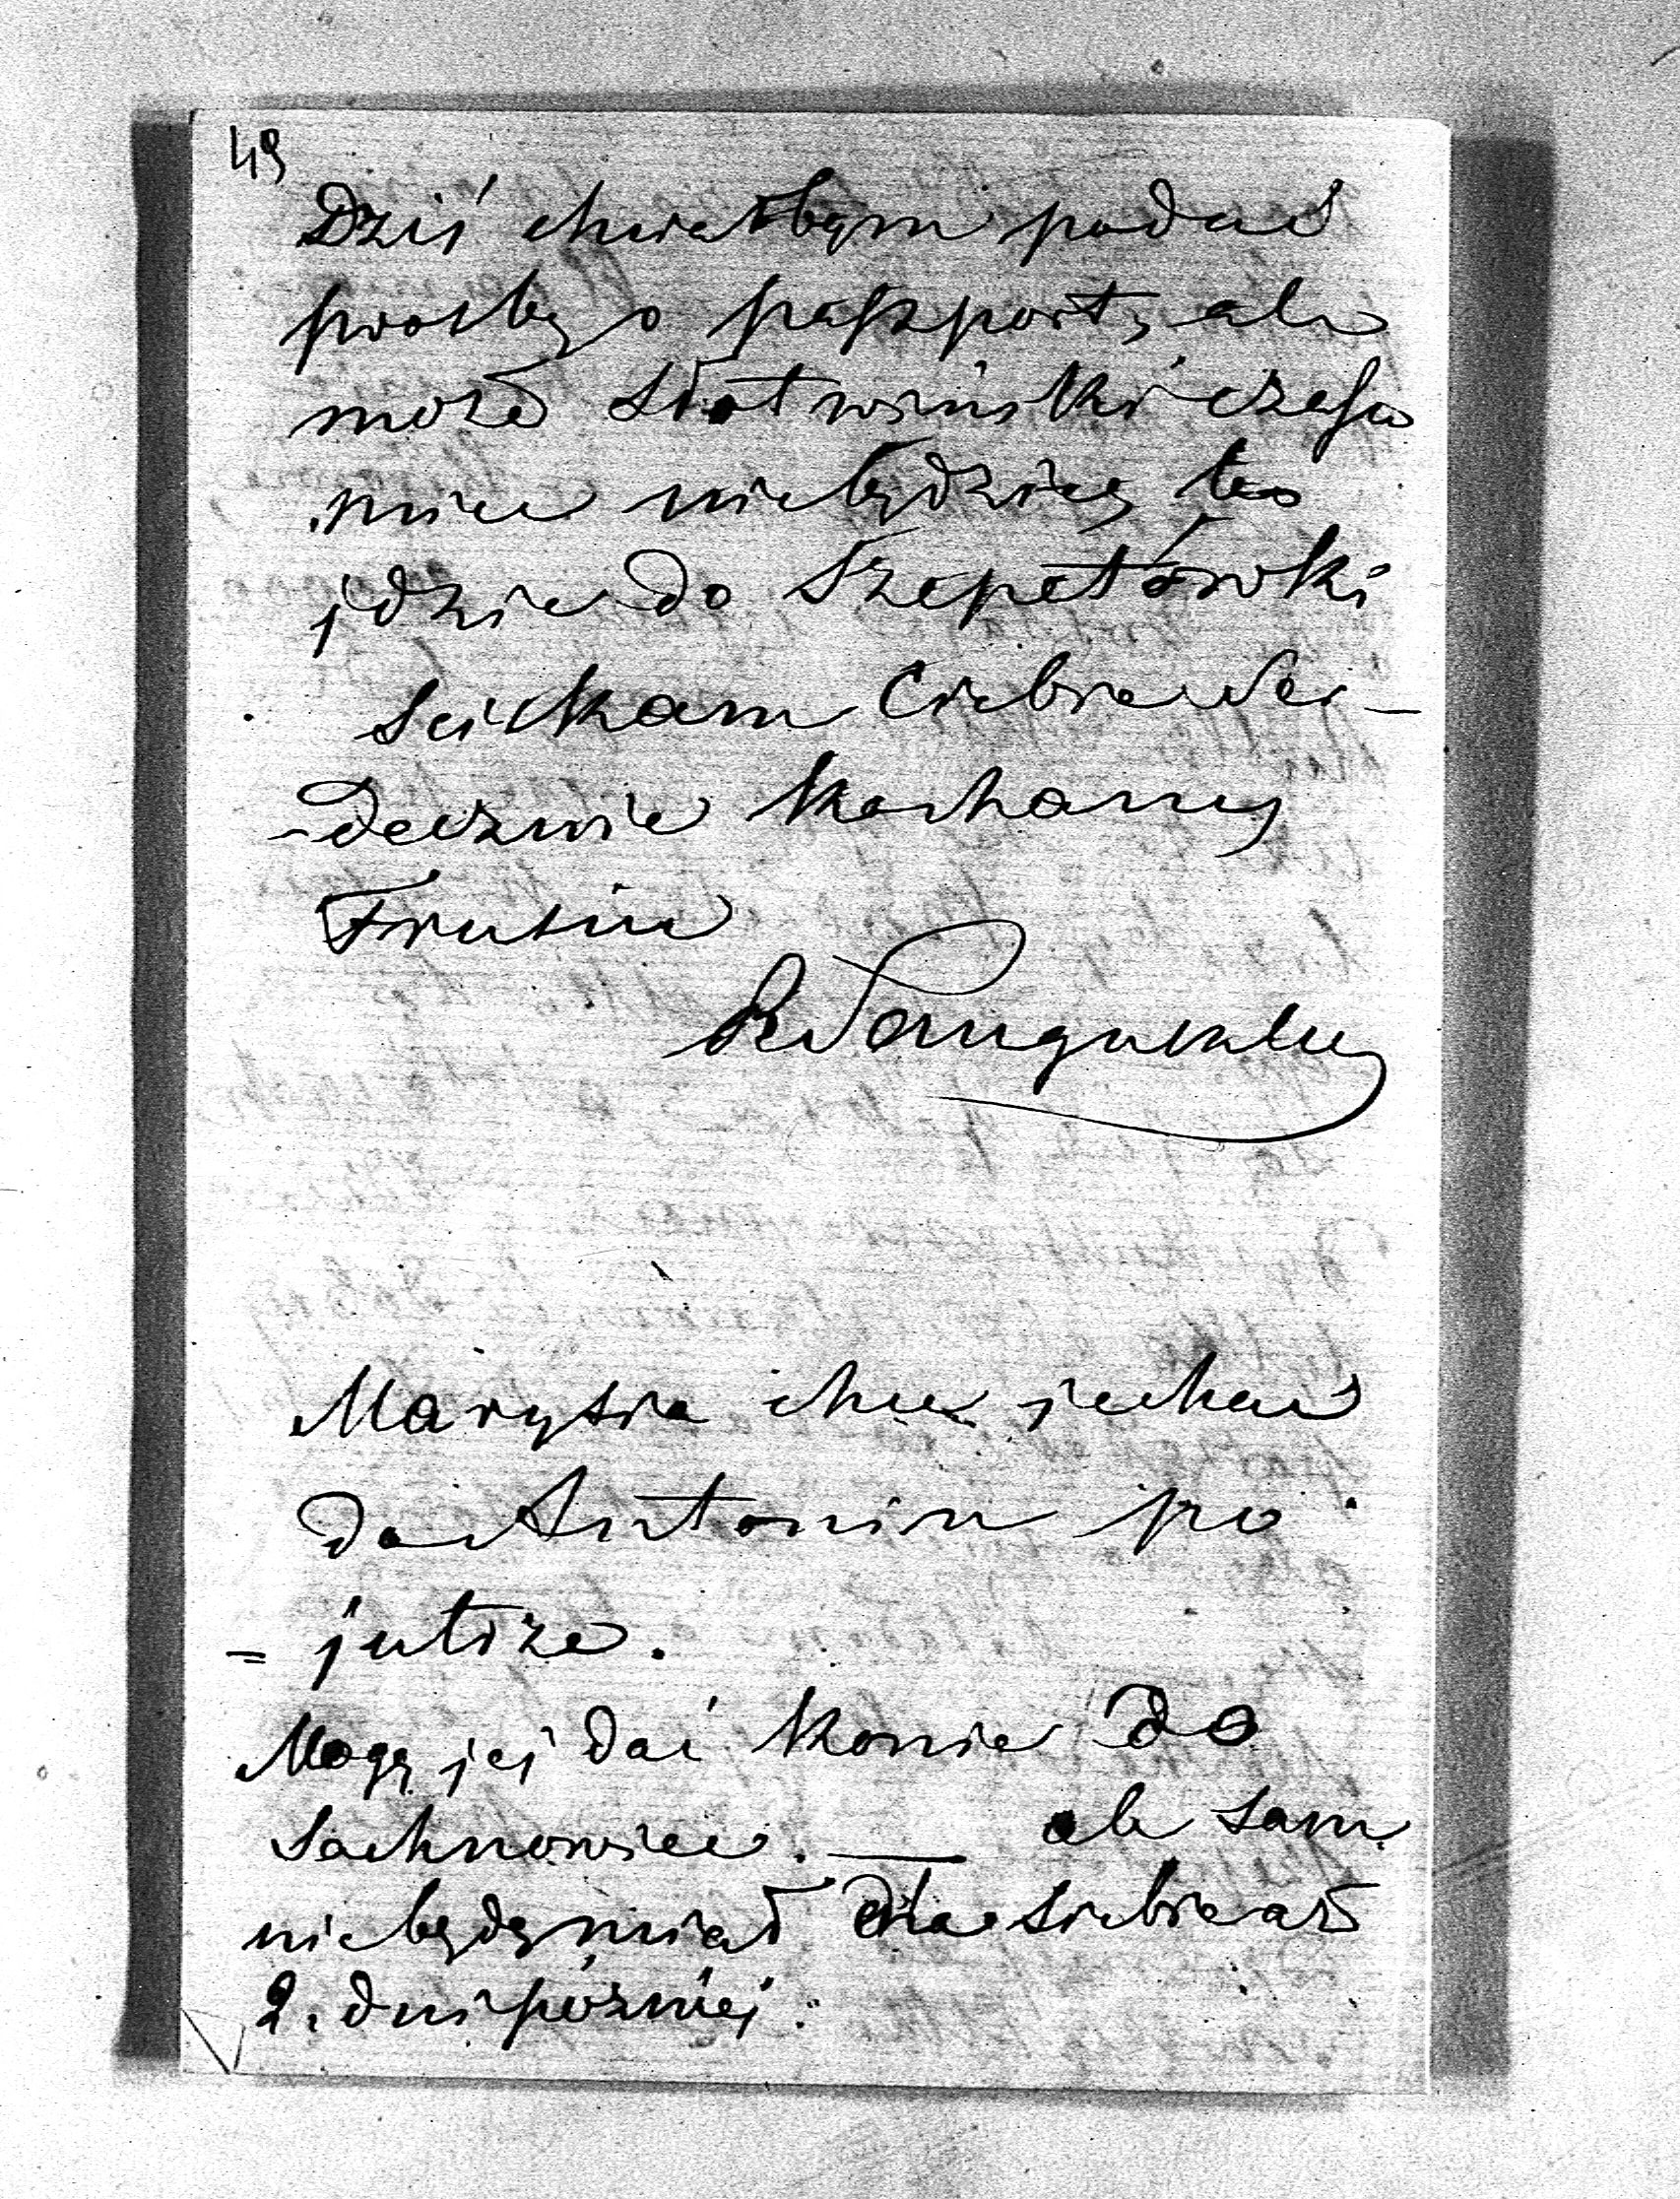 49
Dziś chciałbym podać
prośbę o paszport, ale
może Słotwiński czasu
mieć niebędzie, bo
jdzie do Szepetówki
Sciskam Ciebie Ser-
-decznie kochany
Frusiu
RSanguszko
Marysia chce jechać
do Antonin po
= jutrze.
Mogę jej dać konie do
Sachnowiec. — ale sam
niebędę miał dla siebie aż
2. dni poźniej.